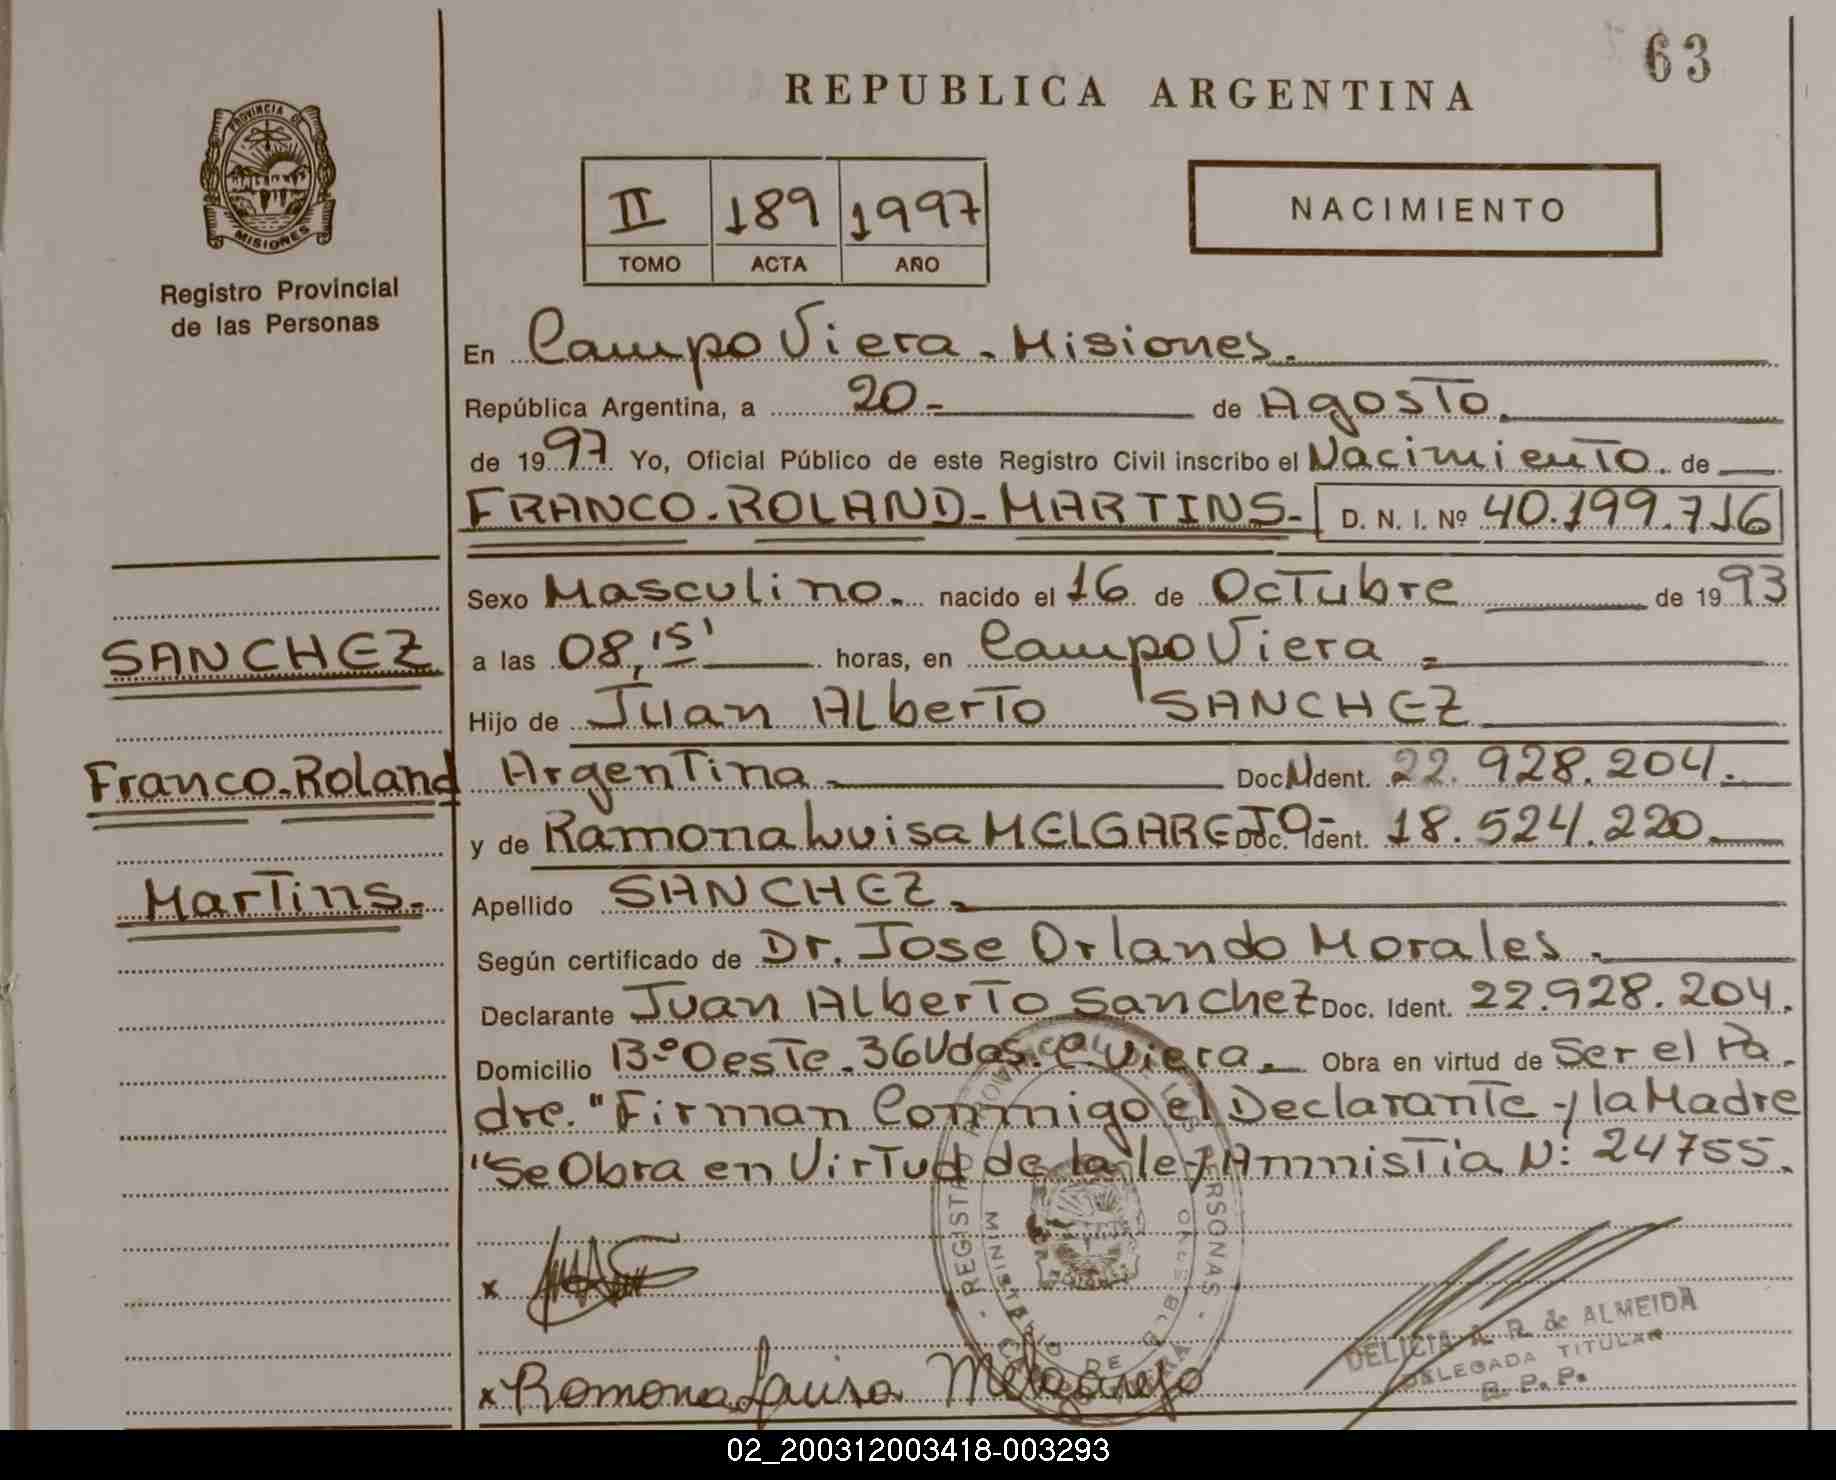 63
REPUBLICA ARGENTINA
PROVINCIA DE
MISIONES
Registro Provincial
de las Personas
II 189 1997
TOMO ACTA AÑO
NACIMIENTO
En Campo Viera - Misiones.
República Argentina, a 20- de Agosto
de 1997 Yo, Oficial Público de este Registro Civil inscribo el Nacimiento. de
FRANCO-ROLAND-MARTINS- D. N. I. Nº 40.199.716
Sexo Masculino. nacido el 16 de Octubre de 1993
SANCHEZ
a las 08,15' horas, en Campo Viera
Hijo de Juan Alberto SANCHEZ
Franco-Roland
Argentina Doc. Ident. 22.928.204.
y de Ramona Luisa MELGAREJO- Doc. Ident. 18.524.220.
Martins.-
Apellido SANCHEZ.
Según certificado de Dr. Jose Orlando Morales.
Declarante Juan Alberto Sanchez Doc. Ident. 22.928.204.
Domicilio Bº Oeste. 36 Vdas. Cº Viera. Obra en virtud de Ser el Pa-
dre. "Firman Conmigo el Declarante y la Madre
"Se Obra en Virtud de la ley Amnistia Nº: 24755.
x
x Ramona Luisa Melgarejo
DELICIA A. R. de ALMEIDA
DELEGADA TITULAR
R. P. P.
02_200312003418-003293